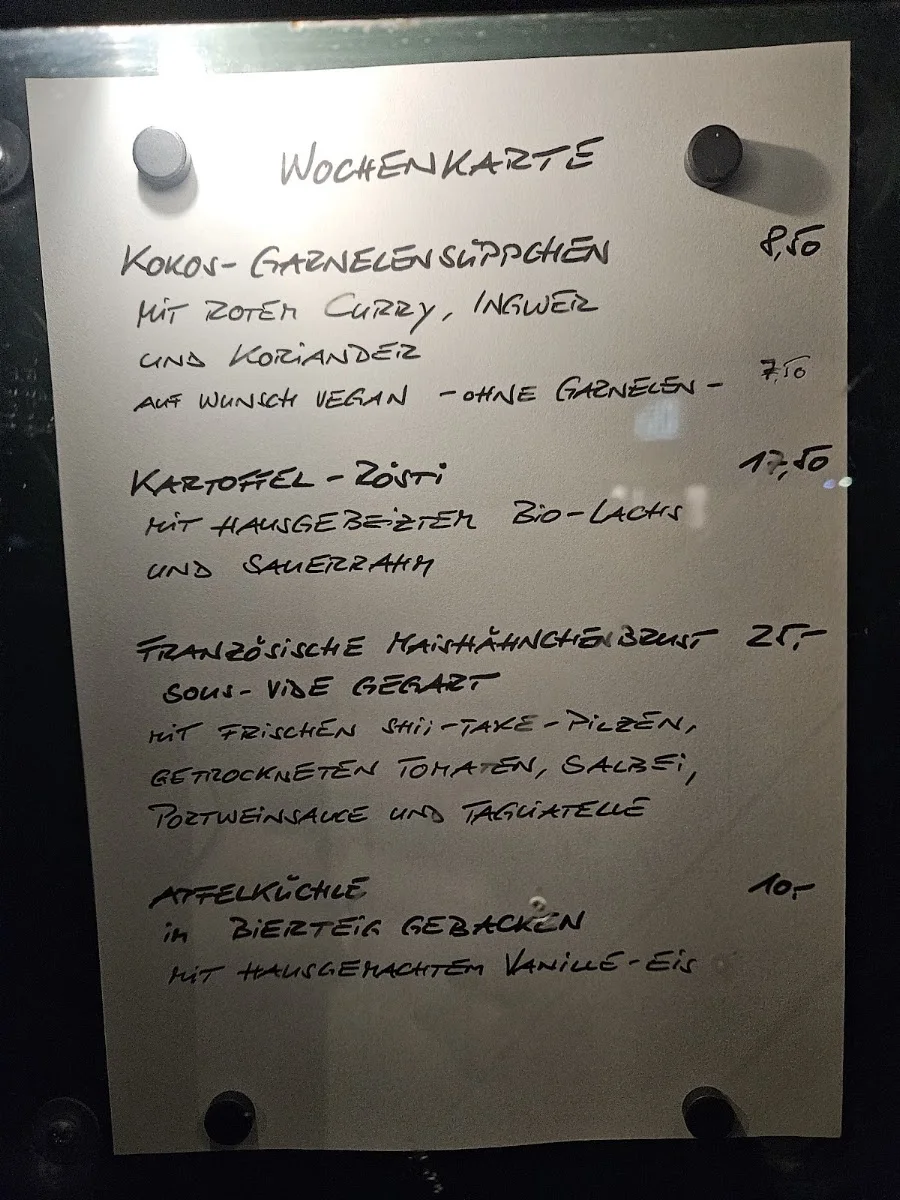 WOCHENKARTE
KOKOS-GARNELENSÜPPCHEN 8,50
MIT ROTEM CURRY, INGWER
UND KORIANDER
AUF WUNSCH VEGAN -OHNE GARNELEN- 7,50
KARTOFFEL-RÖSTI 17,50
MIT HAUSGEBEIZTEM BIO-LACHS
UND SAUERRAHM
FRANZÖSISCHE MAISHÄHNCHENBRUST 25,-
SOUS-VIDE GEGART
MIT FRISCHEN SHII-TAKE-PILZEN,
GETROCKNETEN TOMATEN, SALBEI,
PORTWEINSAUCE UND TAGLIATELLE
APFELKÜCHLE 10,-
im BIERTEIG GEBACKEN
MIT HAUSGEMACHTEM VANILLE-EIS